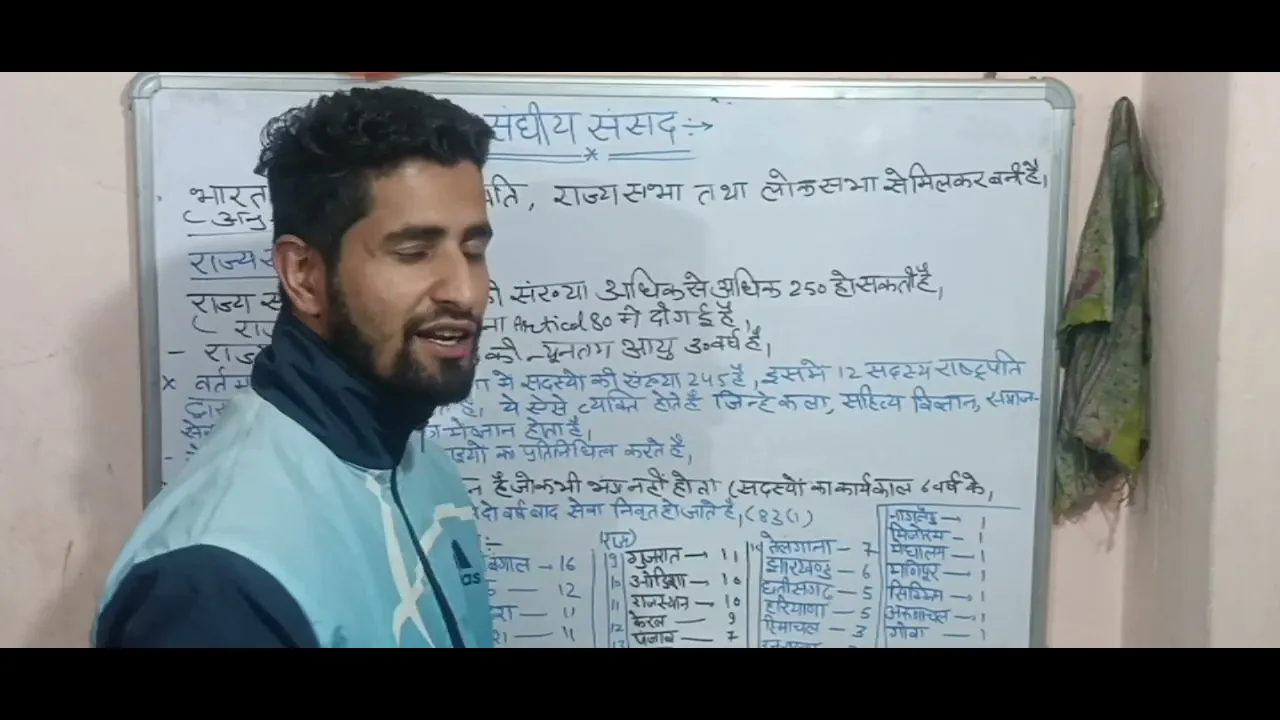 संघीय संसद :→
भारत पति, राज्य सभा तथा लोकसभा से मिलकर बनी है।
( अनु
राज्य स
राज्य स की संख्या अधिक से अधिक 250 हो सकती है,
( राज ना Artical 80 मे दी गई है,
- राज्य की न्यूनतम आयु 30 वर्ष है,
x वर्तम मे सदस्यो की संख्या 245 है, इसमे 12 सदस्य राष्ट्रपति
द्वारा है। ये ऐसे व्यक्ति होते है जिन्हे कला, सहित्य विज्ञान, समाज-
ज्ञान होता है।
का प्रतिनिधित्व करते है,
न है जो कभी भंग नही होता (सदस्यो का कार्यकाल 6 वर्ष के,
दो वर्ष बाद सेवा निवृत हो जाते है, (83(1)
राज्य
बंगाल - 16
12
रा - 11
11
9 गुजरात → 11
10 ओडिशा → 10
11 राजस्थान → 10
12 केरल - 9
13 पंजाब - 7
14 तेलंगाना - 7
झारखण्ड - 6
छत्तीसगढ़ - 5
हरियाणा - 5
हिमाचल - 3
नागालैंड - 1
मिजोरम - 1
मेघालय - 1
मणिपुर - 1
सिक्किम - 1
अरुणाचल - 1
गोवा - 1
das